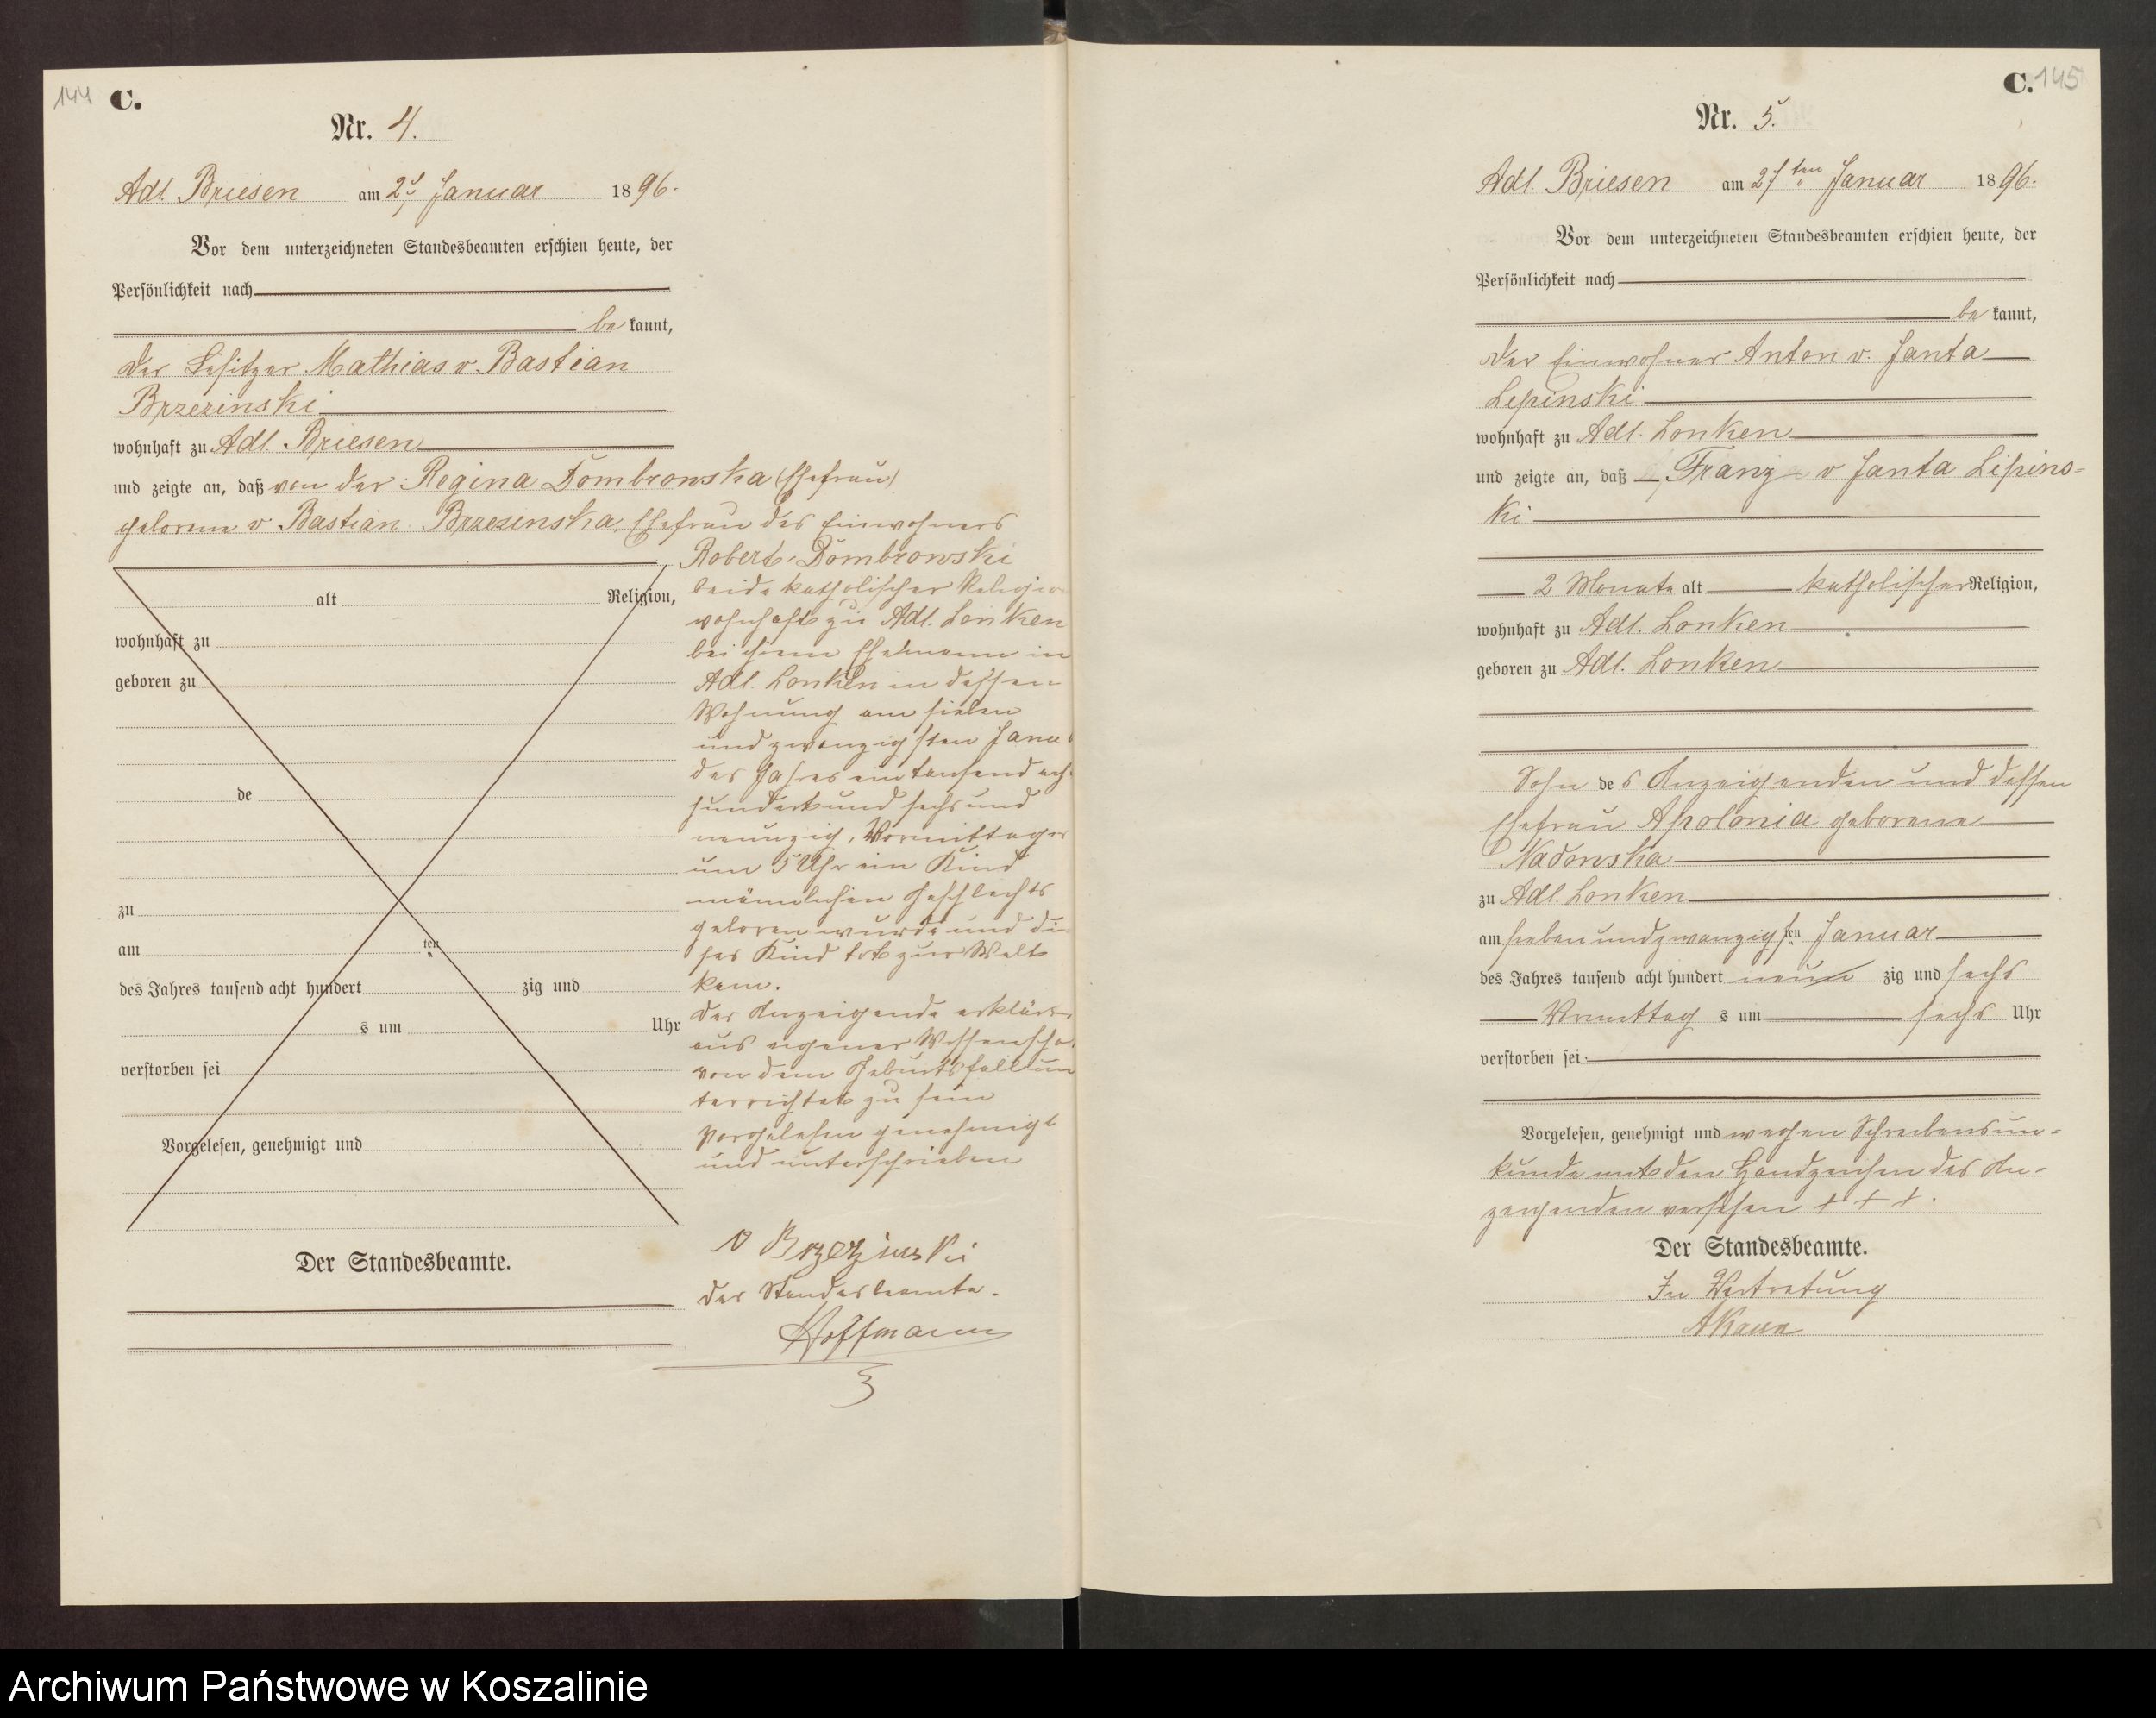 144 C.
Nr. 4.
Adl. Briesen am 27 Januar 1896.
Vor dem unterzeichneten Standesbeamten erschien heute, der
Persönlichkeit nach
be kannt,
der Besitzer Mathias v Bastian
Brzezinski
wohnhaft zu Adl. Briesen
und zeigte an, daß von der Regina Dombrowska (Ehefrau)
geborene v Bastian Brzezinska, Ehefrau des Einwohners
Robert Dombrowski
beide katholischer Religion
wohnhaft zu Adl. Lonken
bei ihrem Ehemann in
Adl. Lonken in dessen
Wohnung am sieben
und zwanzigsten Janu
des Jahres ein tausend ach
hundert und sechs und
neunzig, Vormittags
um 5 Uhr ein Kind
männlichen Geschlechts
geboren wurde und die
ses Kind tot zur Welt
kam.
Der Anzeigende erklärt
aus eigener Wissenscha
von dem Geburtsfall un
terrichtet zu sein
Vorgelesen genehmigt
und unterschrieben
v Brzezinski
Der Standesbeamte.
Hoffmann
alt Religion,
wohnhaft zu
geboren zu
de
zu
am ten
des Jahres tausend acht hundert zig und
s um Uhr
verstorben sei
Vorgelesen, genehmigt und
Der Standesbeamte.
C. 145
Nr. 5.
Adl. Briesen am 27ten Januar 1896.
Vor dem unterzeichneten Standesbeamten erschien heute, der
Persönlichkeit nach
be kannt,
der Einwohner Anton v. Janta
Lepinski
wohnhaft zu Adl. Lonken
und zeigte an, daß Franz v Janta Lipins-
ki
2 Monate alt katholischer Religion,
wohnhaft zu Adl. Lonken
geboren zu Adl. Lonken
Sohn des Anzeigenden und dessen
Ehefrau Apolonia geborene
Nadonska
zu Adl. Lonken
am sieben und zwanzigsten Januar
des Jahres tausend acht hundert neun zig und sechs
Vormittag s um sechs Uhr
verstorben sei
Vorgelesen, genehmigt und wegen Schreibensun-
kunde mit den Handzeichen des An-
zeigenden versehen + + +.
Der Standesbeamte.
In Vertretung
Archiwum Państwowe w Koszalinie